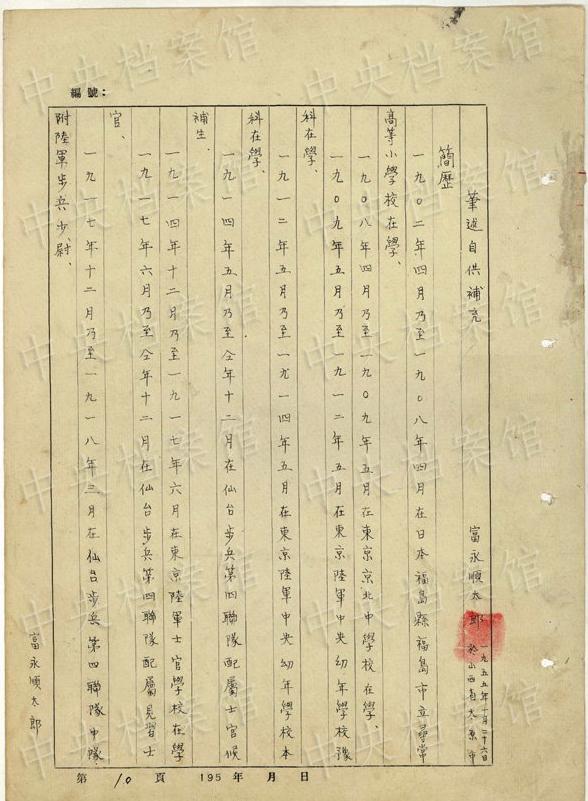 編號：
筆述自供補充
富永順太郎
一九五五年一月二十六日
於山西省太原市
簡歷
一九〇二年四月乃至一九〇八年四月在日本福島縣福島市立尋常
高等小學校在學、
一九〇八年四月乃至一九〇九年五月在東京京北中學校在學、
一九〇九年五月乃至一九一二年五月在東京陸軍中央幼年學校豫
科在學、
一九一二年五月乃至一九一四年五月在東京陸軍中央幼年學校本
科在學、
一九一四年五月乃至仝年十二月在仙台步兵第四聯隊配屬士官候
補生、
一九一四年十二月乃至一九一七年六月在東京陸軍士官學校在學
一九一七年六月乃至仝年十二月在仙台步兵第四聯隊配屬見習士
官、
一九一七年十二月乃至一九一八年三月在仙台步兵第四聯隊中隊
附陸軍步兵少尉、
富永順太郎
第10頁 195 年 月 日
中央档案馆